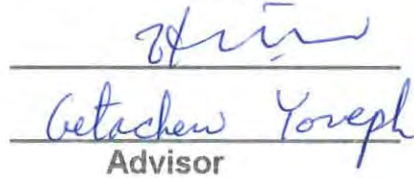 Getachew Yoseph
Advisor